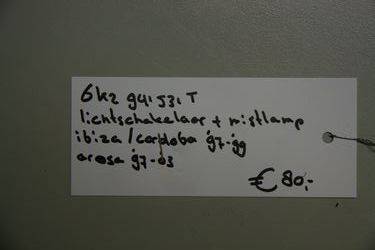 6k2 941.531 T
lichtschakelaar + mistlamp
ibiza/cordoba '97-'99
arosa '97-03
€ 80,-